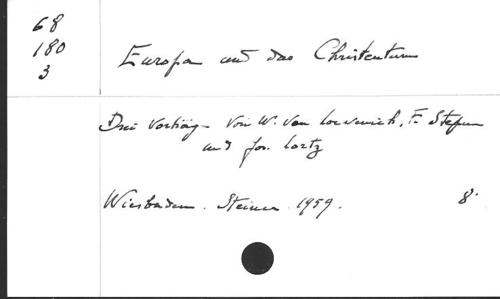 68
180
3
Europa und das Christentum
Drei Vorträge von W. von Loewenich, F. Stepun
und Jos. Lortz
Wiesbaden. Steiner. 1959. 8°